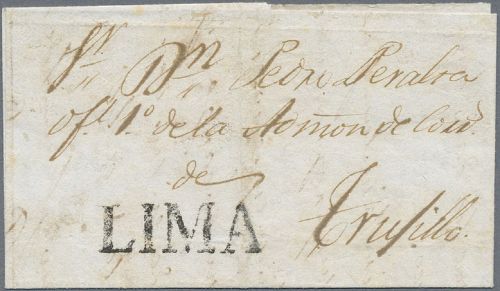 Sr. Dn. Pedro Peralta
ofl. 1º de la Admon de Corrs.
de
LIMA Trusillo.